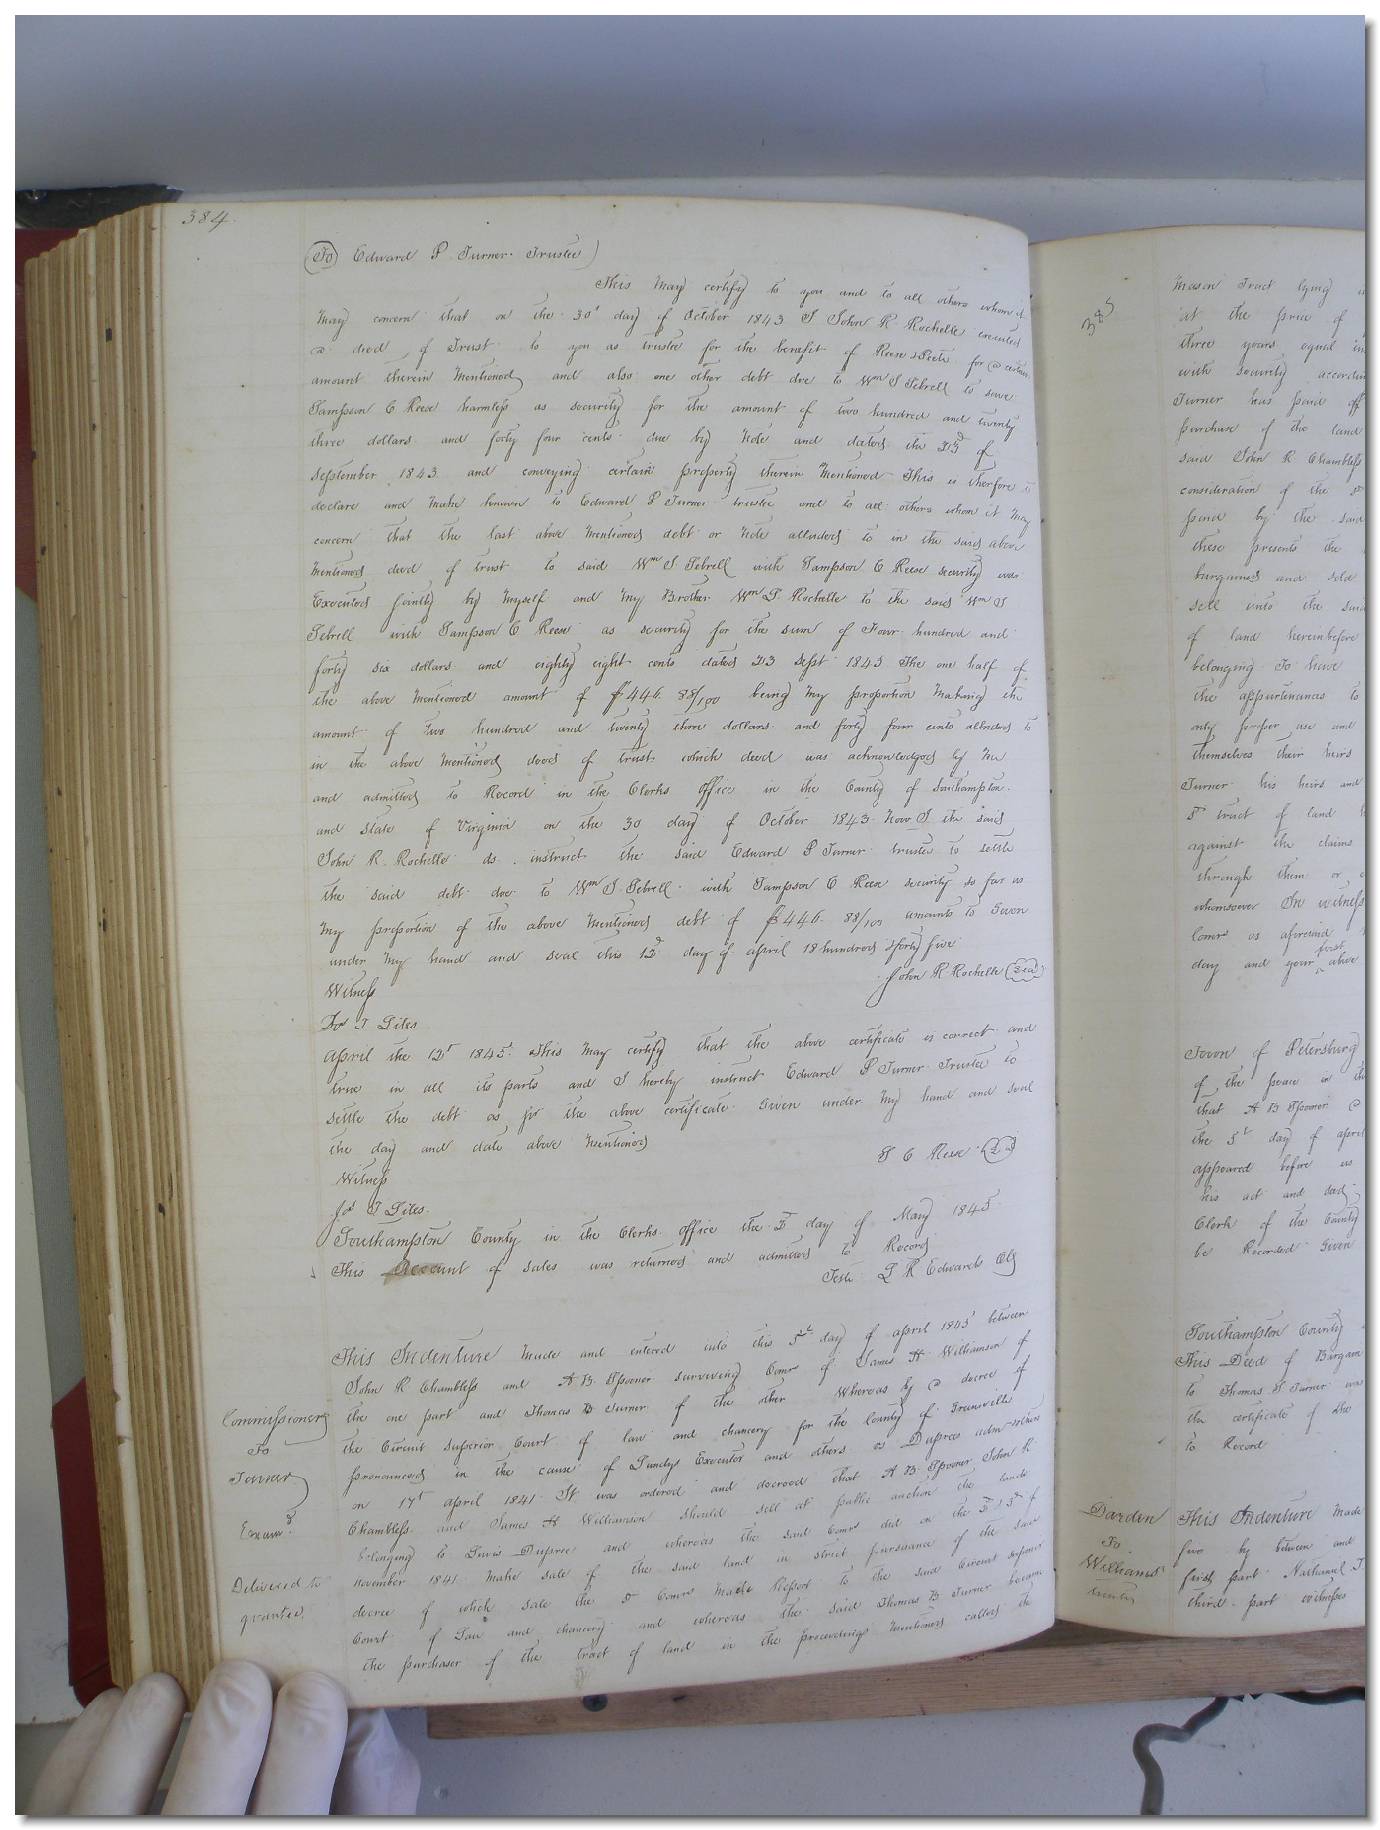 384.
To Edward P. Turner. Trustee
This May certify to you and to all others whom it
May concern that on the 30th day of October 1843 I John R. Rochelle executed
a deed of Trust to you as trustee for the benefit of Reese & Peete for a certain
amount therein Mentioned and also one other debt due to Wm S Sebrell to save
Sampson C Reese harmless as security for the amount of two hundred and twenty
three dollars and forty four cents due by Note and dated the 23d of
September 1843 and conveying certain property therein Mentioned This is therefore to
declare and Make known to Edward P Turner trustee and to all others whom it May
concern that the last above Mentioned debt or Note alluded to in the said above
Mentioned deed of trust to said Wm S. Sebrell with Sampson C Reese security was
Executed jointly by Myself and My Brother Wm T. Rochelle to the said Wm S
Sebrell with Sampson C Reese as security for the sum of Four hundred and
forty six dollars and eighty eight cents dated 23 Sept 1843 The one half of
the above Mentioned amount of $446 88/100 being My proportion Making the
amount of two hundred and twenty three dollars and forty four cents alluded to
in the above Mentioned deed of trust which deed was acknowledged by Me
and admitted to Record in the Clerks Office in the County of Southampton
and state of Virginia on the 30 day of October 1843. Now I the said
John R. Rochelle do instruct the said Edward P Turner trustee to settle
the said debt due to Wm S. Sebrell with Sampson C Reese security so far as
My proportion of the above Mentioned debt of $446. 88/100 amounts to Given
under My hand and seal this 12d day of april 18 hundred & forty five
John R. Rochelle Seal
Witness
Jos T Giles
april the 12t 1845. This May certify that the above certificate is correct and
true in all its parts and I hereby instruct Edward P Turner Trustee to
settle the debt as pr the above certificate. Given under My hand and seal
the day and date above Mentioned
S C Reese
Witness
Jos T Giles.
Southampton County in the Clerks Office the day of May 1845.
This Account of Sales was returned and admitted to Record
Teste L R Edwards Clk
This Indenture Made and entered into this 5th day of april 1845 between
John R Chambless and A B Spooner surviving Comrs of James H Williamson of
the one part and Thomas B Turner of the other Whereas by a decree of
the Circuit Superior Court of law and chancery for the County of Greensville
pronounced in the cause of Lundys Executor and others vs Duprees adm & others
on 17t april 1841. It was ordered and decreed that A B. Spooner John R.
Chambless and James H Williamson should sell at public auction the lands
belonging to Lewis Dupree and whereas the said Comrs did on the
November 1841 Make sale of the said land in strict pursuance of the said
decree of which sale the sd Comrs Made Report to the said Circuit superior
Court of Law and chancery and whereas the said Thomas B Turner became
the purchaser of the tract of land in the proceedings Mentioned called the
Commissioners
To
Turner
Examd
Delivered to
grantee
385
Mason Tract lying
at the price of
three years equal
with security
Turner has paid off
purchase of the land
said John R Chambless
consideration of the
paid by the said
these presents the
bargained and sold
sell unto the said
of land hereinbefore
belonging To have
the appurtenances to
only proper use and
themselves their heirs
Turner his heirs and
sd tract of land
against the claims
through them or
whomsoever In witness
Comrs as aforesaid
day and year first above
Town of Petersburg
of the peace in the
that A B Spooner
the 5t day of april
appeared before us
his act and deed
Clerk of the County
be Recorded Given
Southampton County
This Deed of Bargain
to Thomas Turner was
the certificate of
to Record
Darden
To
Williams
This Indenture Made
five by between and
first part Nathaniel T.
third part witnesses